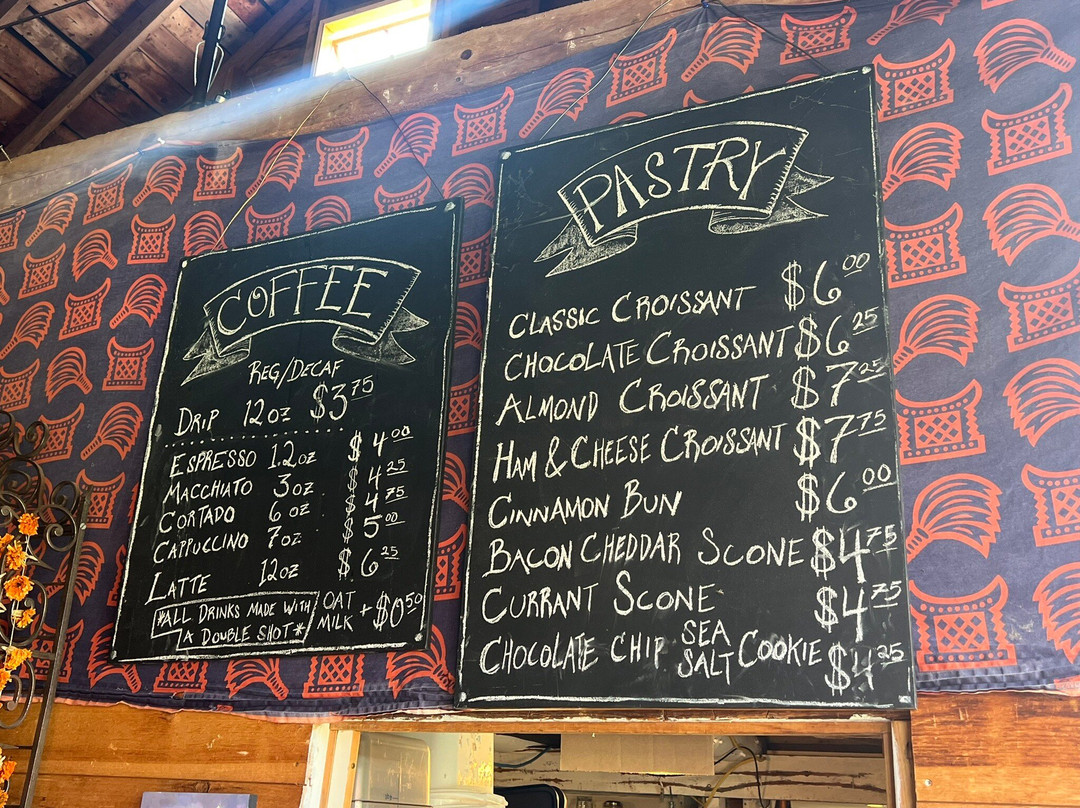 COFFEE
REG/DECAF
DRIP 12oz $3.75
ESPRESSO 1.2oz $4.00
MACCHIATO 3oz $4.25
CORTADO 6 oz $4.75
CAPPUCCINO 7oz $5.00
LATTE 12oz $6.25
*ALL DRINKS MADE WITH
A DOUBLE SHOT*
OAT
MILK + $0.50
PASTRY
CLASSIC CROISSANT $6.00
CHOCOLATE CROISSANT $6.25
ALMOND CROISSANT $7.25
HAM & CHEESE CROISSANT $7.75
CINNAMON BUN $6.00
BACON CHEDDAR SCONE $4.75
CURRANT SCONE $4.75
CHOCOLATE CHIP SEA SALT COOKIE $4.25